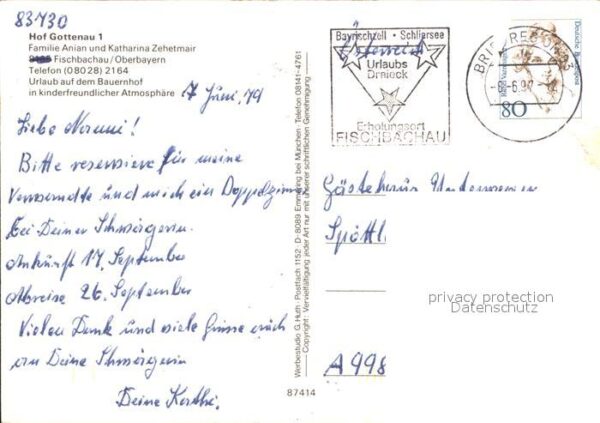 83730
Hof Gottenau 1
Familie Anian und Katharina Zehetmair
Fischbachau/Oberbayern
Telefon (08028) 2164
Urlaub auf dem Bauernhof
in kinderfreundlicher Atmosphäre
7 Juni, 94
Liebe
Bitte reserviere für meine
und mich ein Doppelzimmer
bei Deiner Schwägerin.
Ankunft 17. September
Abreise 26. September
Vielen Dank und viele Grüsse auch
an Deine Schwägerin
Deine Kathi.
Werbestudio G. Huth · Postfach 1152 · D-8089 Emmering bei München · Telefon 08141-4761
Copyright: Vervielfältigung jeder Art nur mit unserer schriftlichen Genehmigung
87414
Bayrischzell · Schliersee
Österreich
Urlaubs
Dreieck
Erholungsort
FISCHBACHAU
80
Deutsche Bundespost
Gästehaus
Spöttl
privacy protection
Datenschutz
A 998